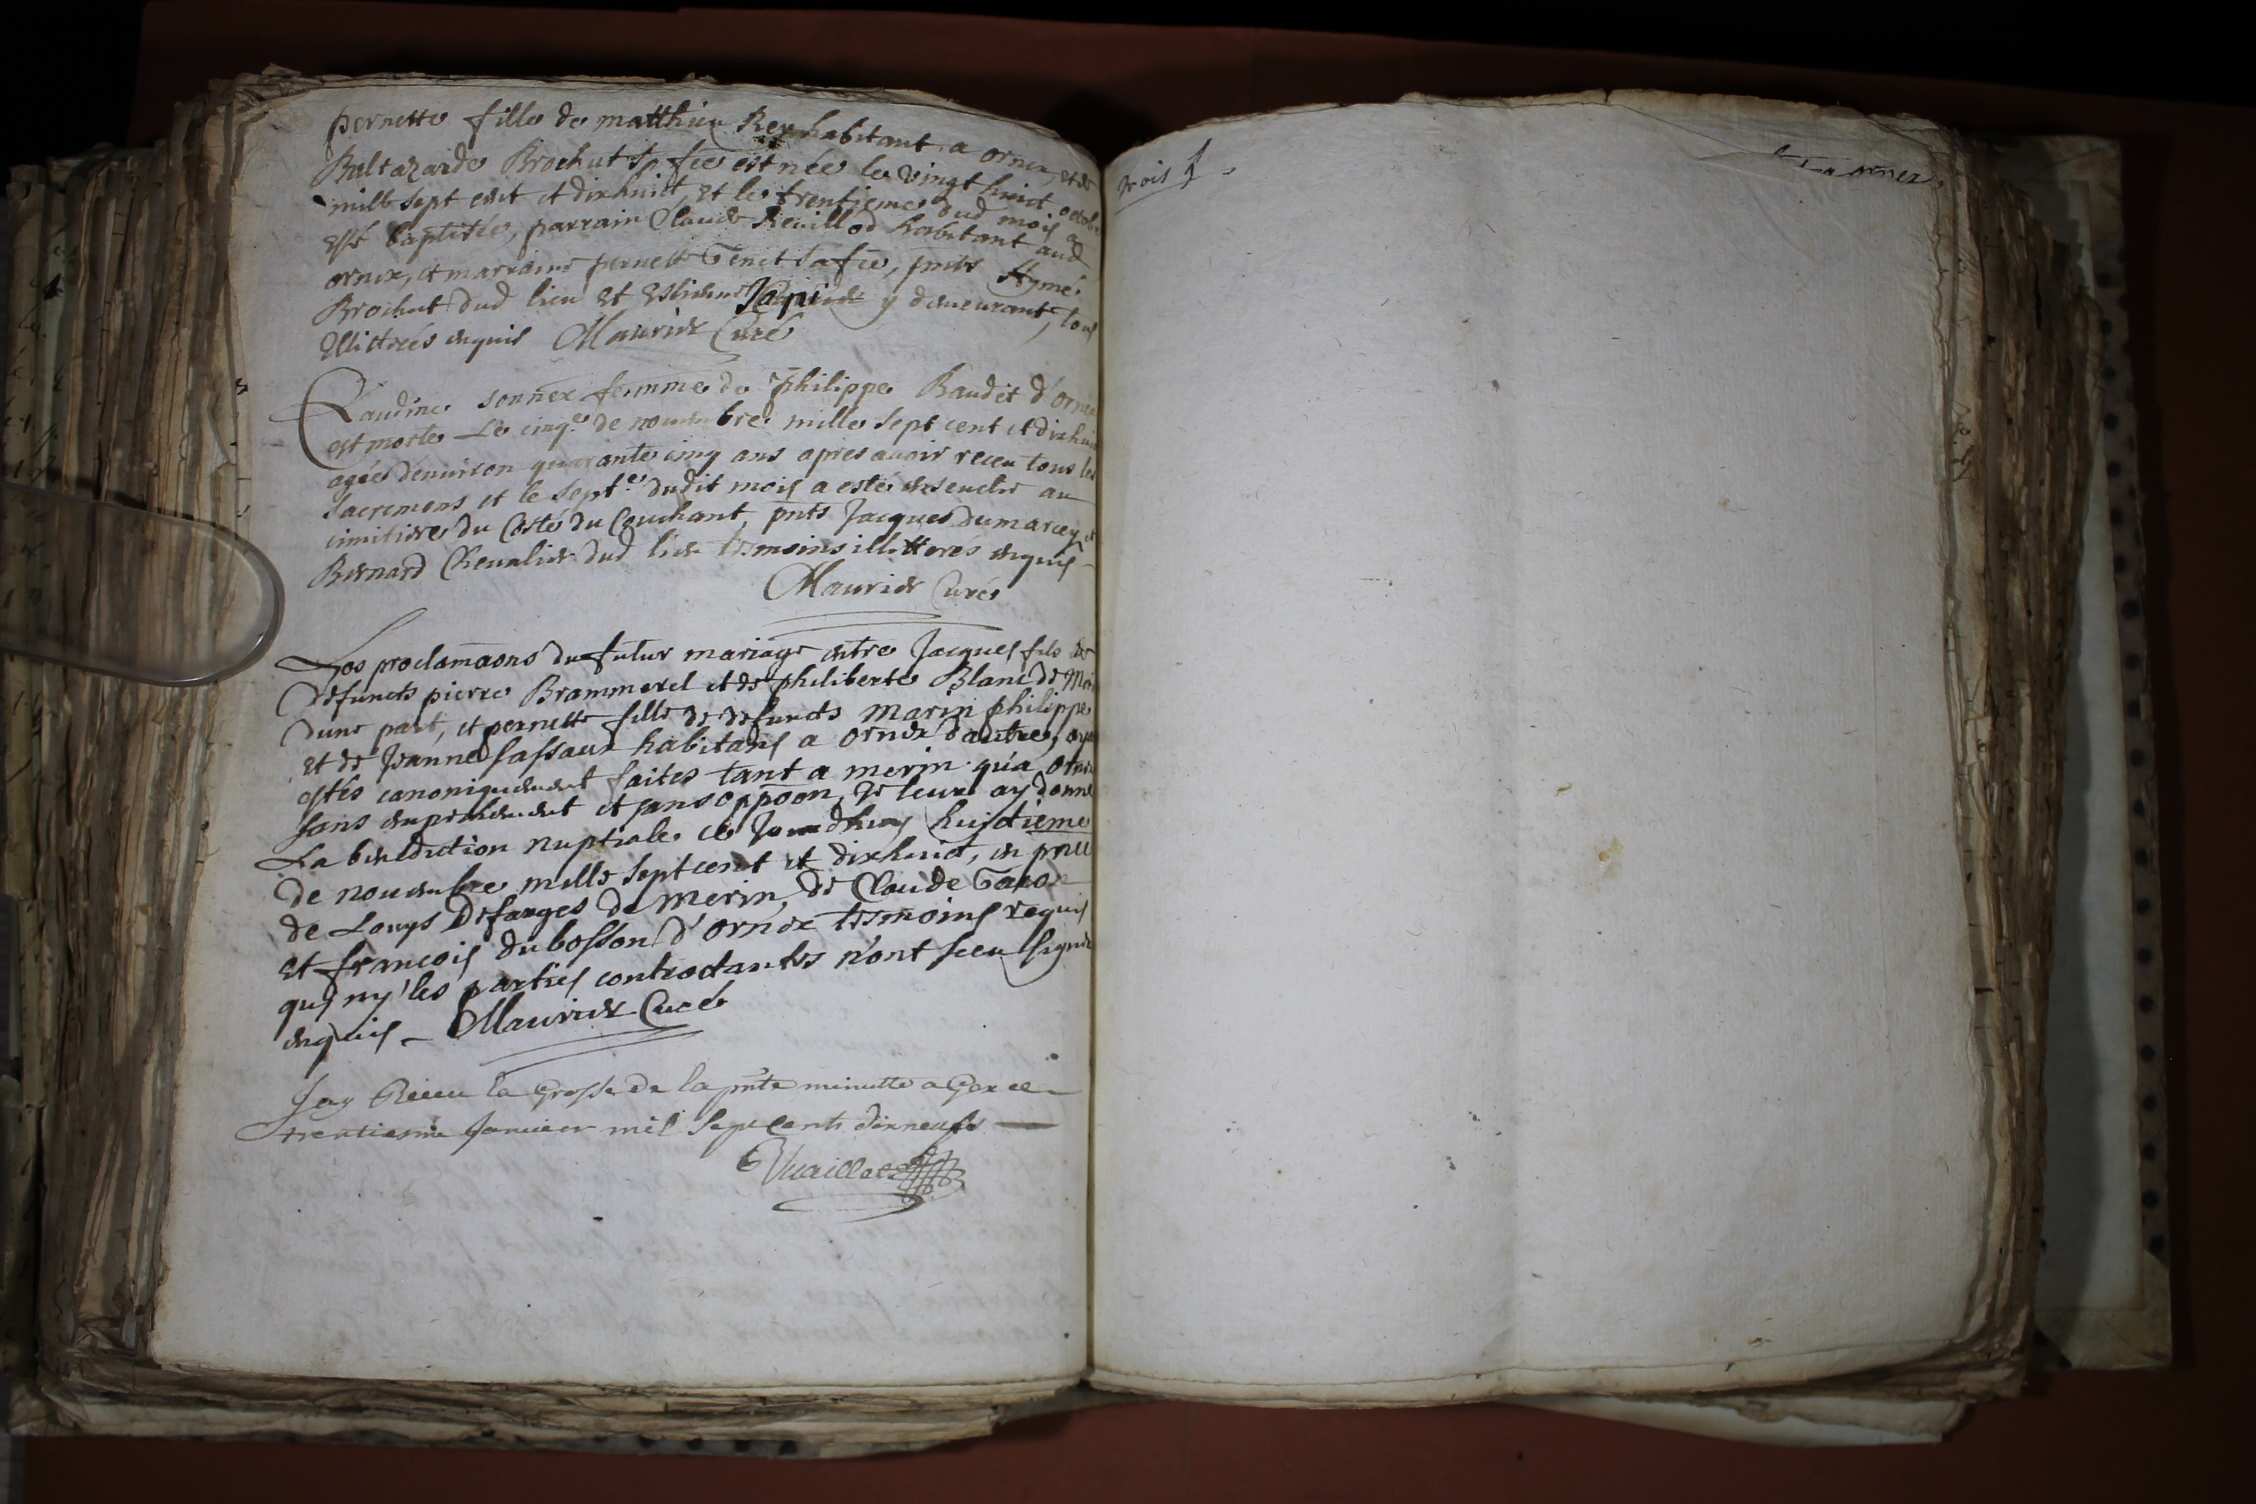 pernette fille de matthieu Rey habitant a ornex, et de
Baltazarde Brochut sa fee est née le vingt huict octob
mille sept cent et dixhuict, et le trentieme dud mois a
esté baptisée, parrain Claude Reuillod habitant aud
ornex, et marraine pernette Genet sa fee, pnts Aymé
Brochut dud lieu et Estienne y demeurant, tous
illitterés enquis Maurier Curé
Claudine sonnex femme de Philippe Baudit d'ornex
est morte Le cinqe de nouembre mille sept cent et dixhuict
agée denuiron quarante cinq ans apres auoir receu tous les
sacremens et le septe dudit mois a esté enseuelie au
cimitiere du Costé du Couchant, pnts Jacques Dumarcey et
Bernard Cheualier dud lieu tesmoins illitterés enquis
Maurier Curé
Les proclamaons du futur mariage entre Jacques fils de
defuncts pierre Brammerel et de philiberte Blanc de
dune part, et pernette fille de defuncts Marin philippe
et de Jeanne sassaux habitans a ornex dautre, ay
estés canoniquement faites tant a merin qu'a orn
sans empeschement et sans oppoon, Je leur ay donne
La benediction nuptiale ce Jourdhuy huictieme
de nouembre mille sept cent et dixhuict, en pnce
de Louys Defarges de merin, de Claude
et francois dubosson d'ornex tesmoins requis
qui ny les parties contractantes n'ont sceu signer
enquis - Maurier Curé
Jay Receu la Grosse de la pnte minutte a Gex ce
trentiesme Januier mil sept cents dixneufs
Vuaillet
trois f
ornex